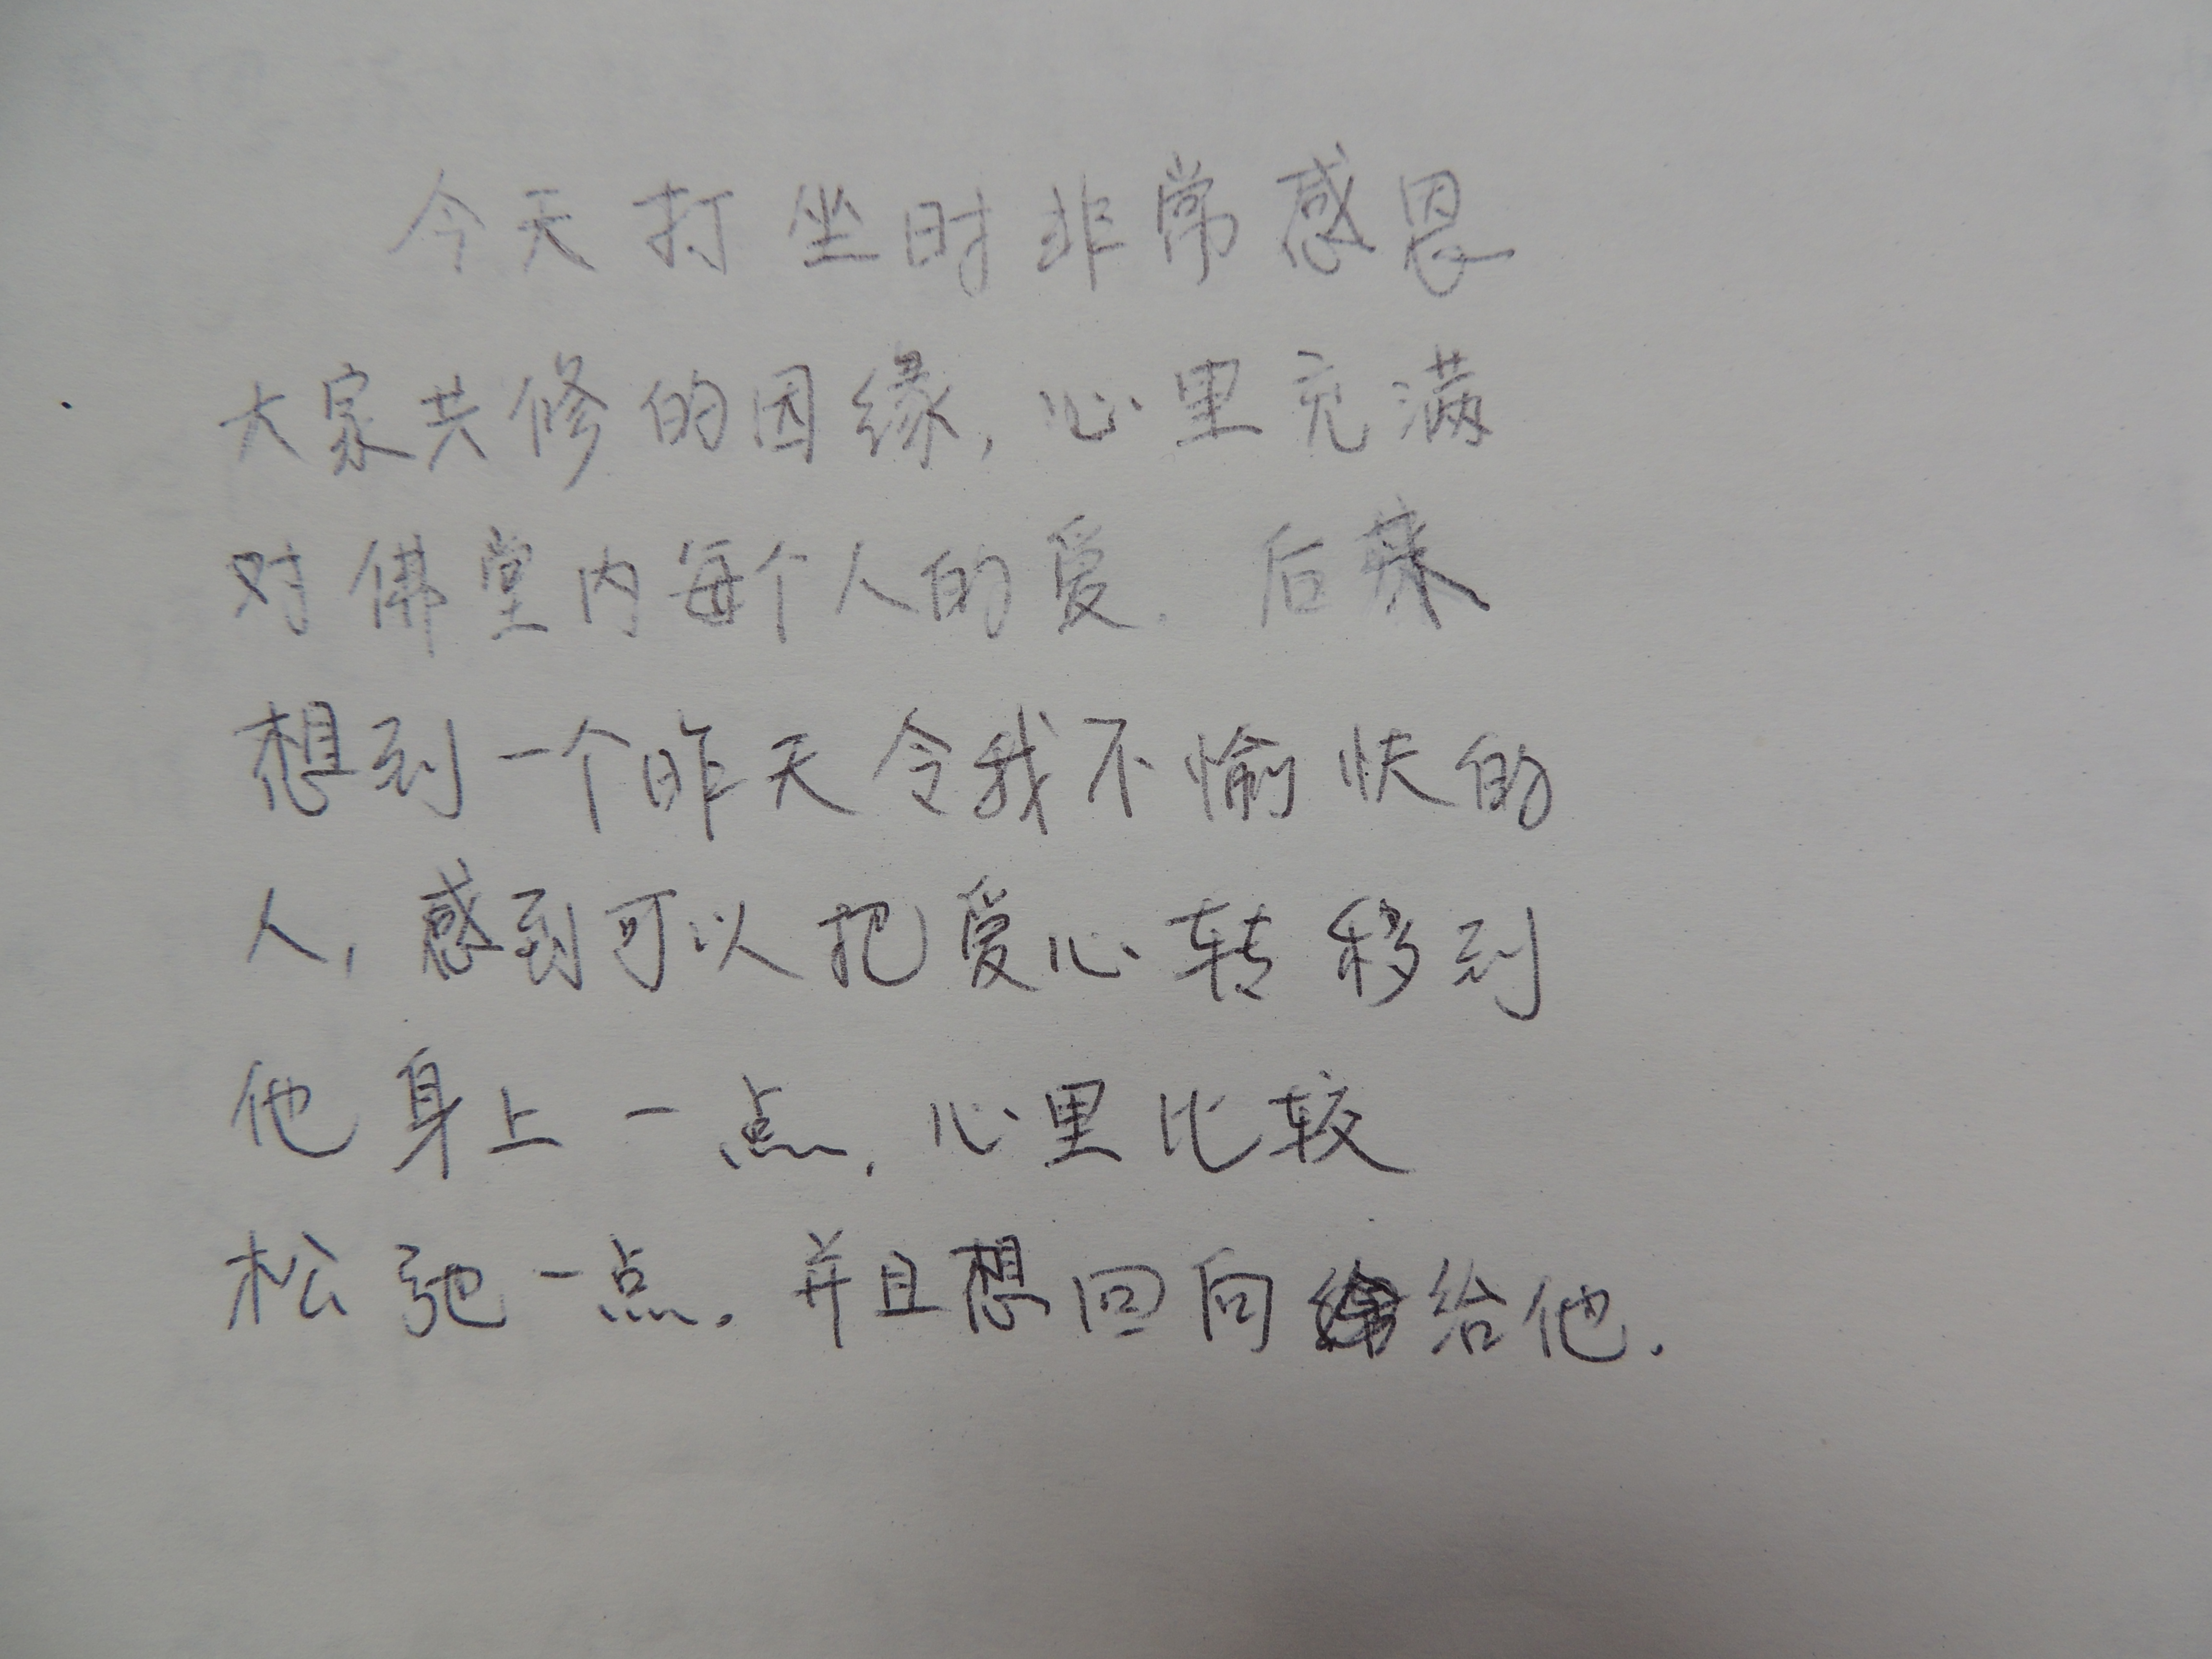 今天打坐时非常感恩
大家共修的因缘,心里充满
对佛堂内每个人的爱.后来
想到一个昨天令我不愉快的
人,感到可以把爱心转移到
他身上一点,心里比较
松弛一点.并且想回向给他.